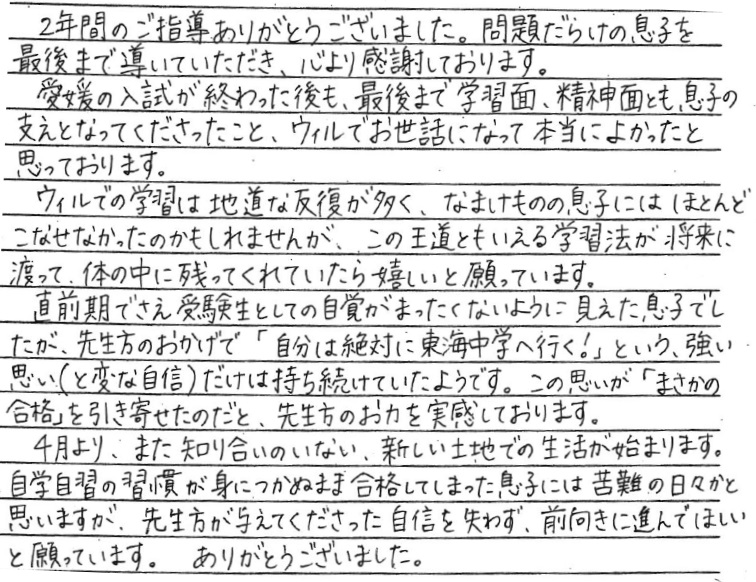 ２年間のご指導ありがとうございました。問題だらけの息子を
最後まで導いていただき、心より感謝しております。
愛媛の入試が終わった後も、最後まで学習面、精神面とも、息子の
支えとなってくださったこと、ウィルでお世話になって本当によかったと
思っております。
ウィルでの学習は地道な反復が多く、なまけものの息子にはほとんど
こなせなかったのかもしれませんが、この王道ともいえる学習法が将来に
渡って、体の中に残ってくれていたら嬉しいと願っています。
直前期でさえ受験生としての自覚がまったくないように見えた息子でし
たが、先生方のおかげで「自分は絶対に東海中学へ行く!」という、強い
思い(と変な自信)だけは持ち続けていたようです。この思いが「まさかの
合格」を引き寄せたのだと、先生方のお力を実感しております。
４月より、また知り合いのいない、新しい土地での生活が始まります。
自学自習の習慣が身につかぬまま合格してしまった息子には苦難の日々かと
思いますが、先生方が与えてくださった自信を失わず、前向きに進んでほしい
と願っています。 ありがとうございました。